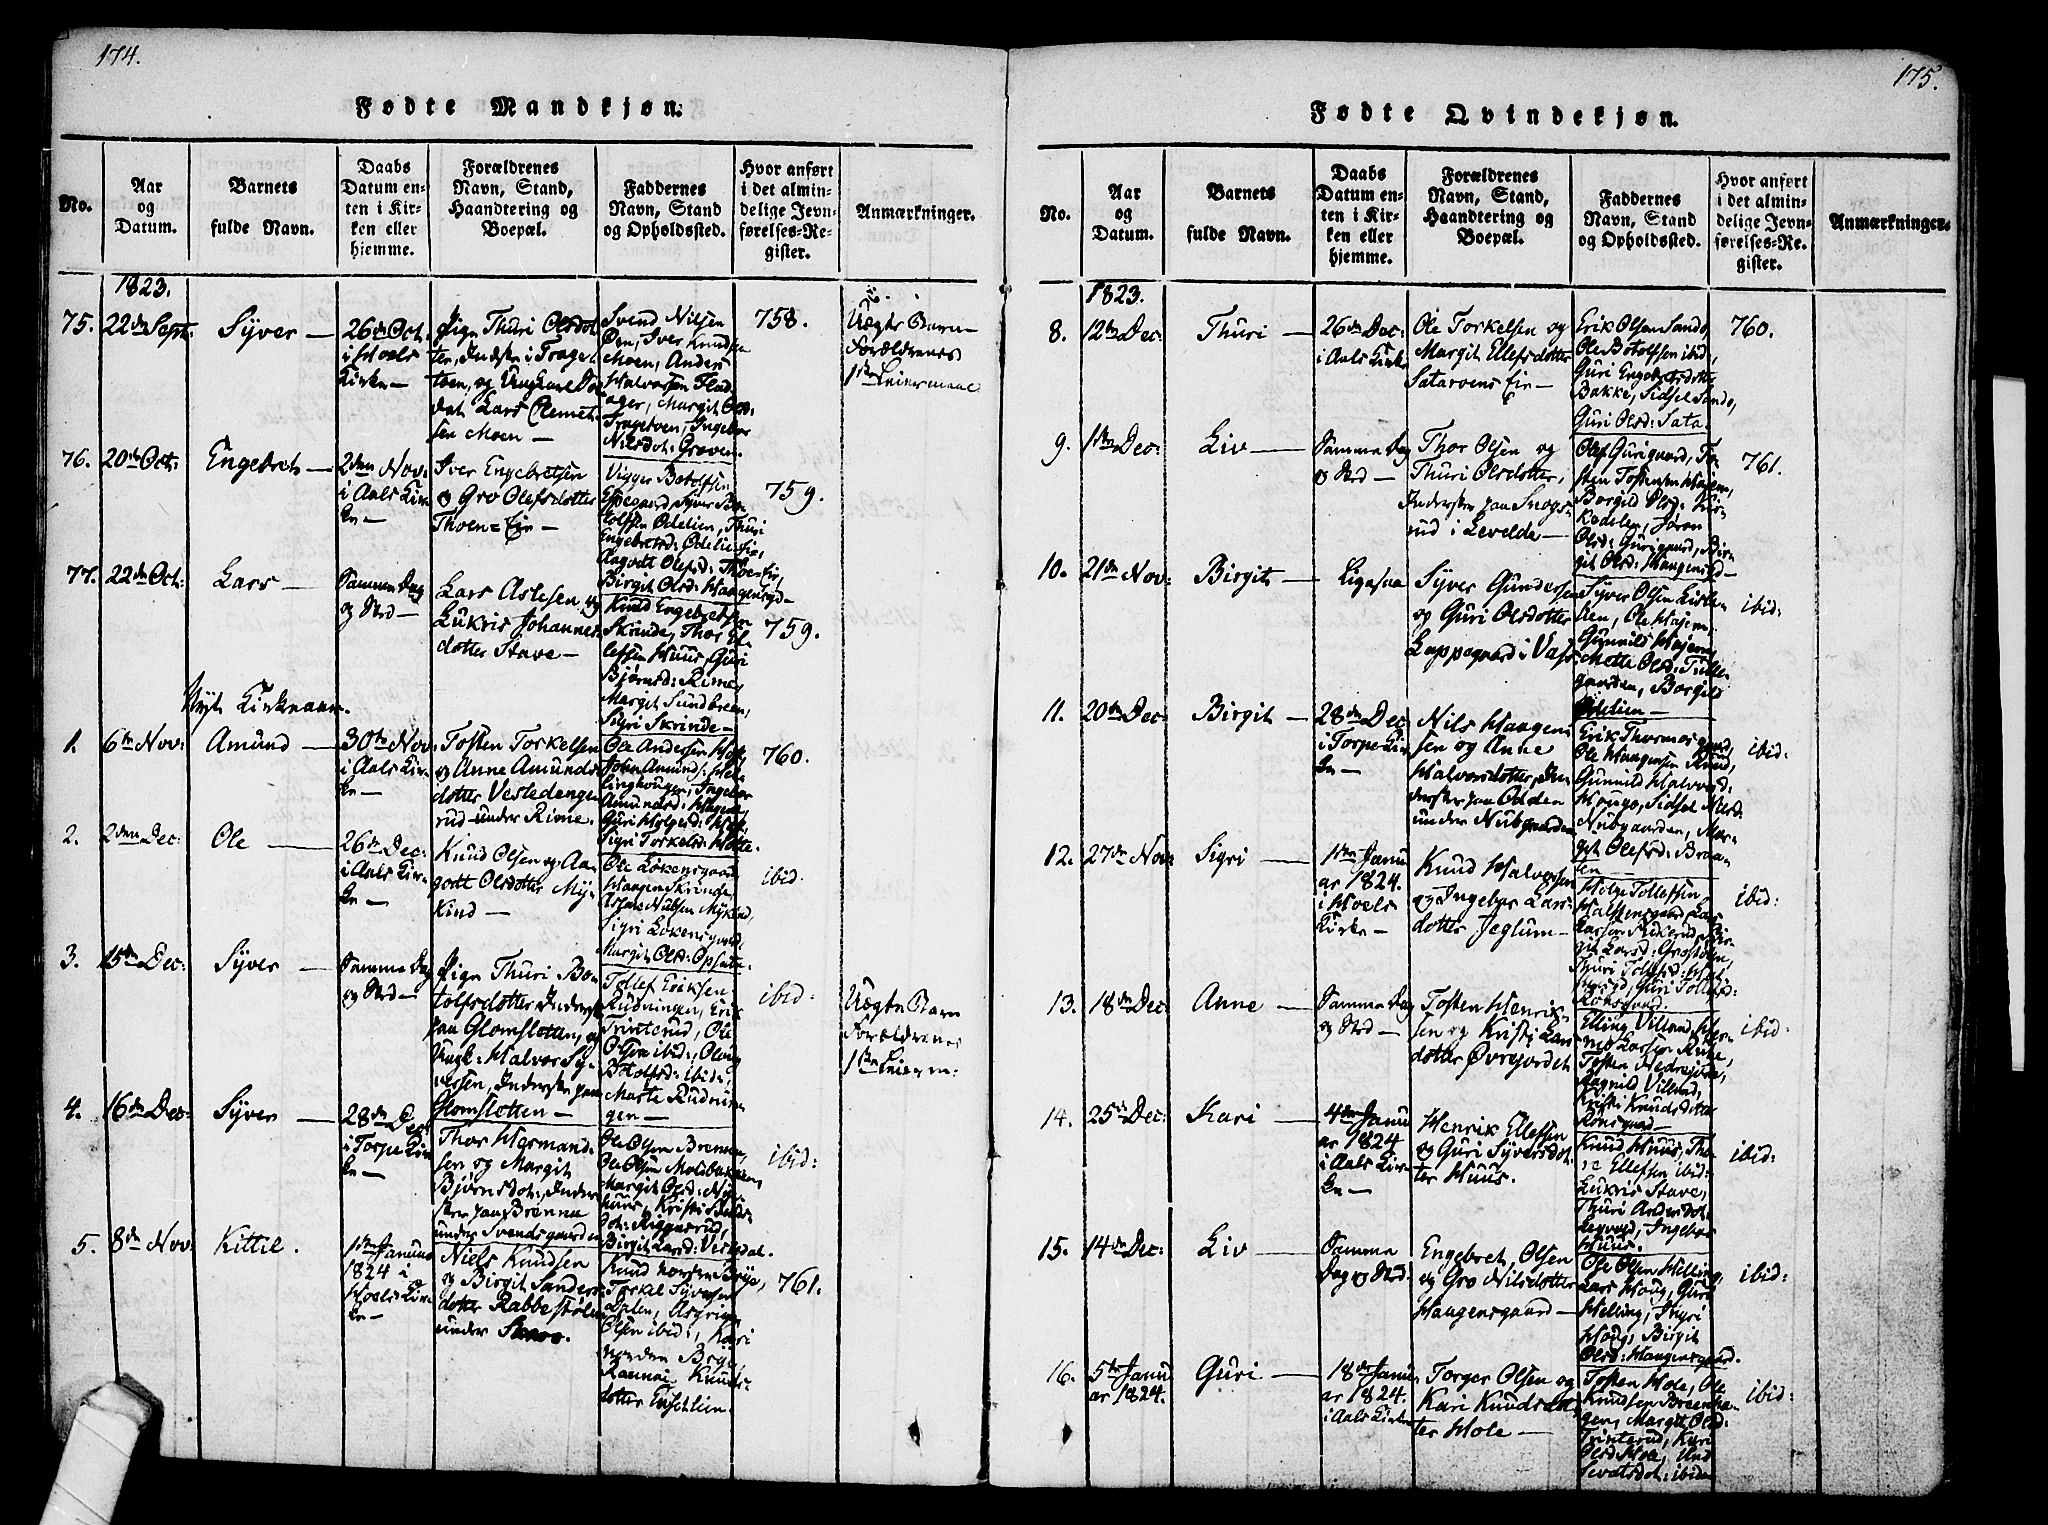 174.
Fødte Mandkjøn.
No.
Aar
og
Datum.
Barnets
fulde Navn.
Daabs
Datum en-
ten i Kir-
ken eller
hjemme.
Forældrenes
Navn, Stand,
Haandtering og
Boepæl.
Faddernes
Navn, Stand
og Opholdssted.
Hvor anført
i det almin-
delige Jevn-
førelses-Re-
gister.
Anmærkninger.
1823.
75.
22de Sept:
Syver —
26de Oct:
i Hoels
Kirke —
Pige Thuri Olsdot
ter, Inderst i Traget-
toen, og Ungkarl Sol
dat Lars Clemet-
sen Moen —
Svend Nilsen
Øen, Iver Knuds
Moen, Anders
Halvorsen Flad
ager, Margit Ols:
Tragetoen, Ingebor
Nilsdot: Grøven.
758.
Uægte Barn
Forældrenes
1ste Leiermaal
76.
20de Oct:
Engebret —
2den Nov:
i Aals Kir-
ke —
Iver Engebretsen
og Gro Olefsdotter
Thoen = Eie —
Vigger Botolfsen
Espegaard, Syver Bo-
tolfsen Ødelien, Thuri
Engebretsd: Ødelie-Eie,
Aagodt Olefsd: Thoe-Eie,
Birgit Olsd: Haagensgd —
759.
77.
22de Oct:
Lars —
Samme Dag
og Sted —
Lars Astesen og
Lukris Johannes
dotter Stave —
Knud Engebretsen
Skrinde, Thor El-
lefsen Huus, Guri
Bjørnsd: Rime,
Margit Sundbreen,
Sigri Skrinde —
759.
Nyt Kirkeaar.
1.
6te Nov:
Amund —
30te Nov:
i Aals Kir-
ke —
Tosten Torkelsen
og Anne Amunds
dotter Vestedengen
rud under Rime.
Ole Andersen
760.
2.
2den Dec:
Ole —
26de Dec:
i Aals Kir-
ke —
Knud Olsen og Aa-
godt Olsdotter My-
kind —
Ole Løkensgaard
Haagen Skrinde
Sigri Løkensgaard,
Margit Olsd: Opsata.
ibid:
3.
15de Dec:
Syver —
Samme Dag
og Sted —
Pige Thuri Bo-
tolfsdotter Inderst
paa Glomsløtten, og
Ungk: Halvor Sy-
versen, Inderste paa
Glomsløtten —
Tollef Eriksen
Rudningen, Erik
Trinterud, Ole
Olsen ibid:, Olaug
Botolfsd: ibid:,
Marte Rudnin-
gen —
ibid:
Uægte Barn
Forældrenes
1ste Leierm:
4.
16de Dec:
Syver —
28de Dec:
i Torpe Kir-
ke —
Thor Herman-
sen og Margit
Bjørnsdot:, Inder-
ster paa Brenna
under Svendsgaarden
Ole Olsen Brenna,
Ole Olsen Moldbakken,
Margit Olsd: Ny-
huus,
Birgit Larsd: Vesledal.
ibid:
5.
8de Nov:
Kittil.
1ste Januar
1824 i
Hoels Kir-
ke —
Niels Knudsen
og Birgit Sanders
dotter Rabbestølen
under Skare.
Knud Norden Brye,
Torkel Syversen
Dalen, Asgrim
Olsen ibid:, Kari
Norden Brye,
Rannei Knuds-
dotter Enschlien.
761.
175.
Fødte Qvindekjøn.
No.
Aar
og
Datum.
Barnets
fulde Navn.
Daabs
Datum en-
ten i Kir-
ken eller
hjemme.
Forældrenes
Navn, Stand,
Haandtering og
Boepæl.
Faddernes
Navn, Stand
og Opholdssted.
Hvor anført
i det almin-
delige Jevn-
førelses-Re-
gister.
Anmærkninger.
1823.
8.
12te Dec:
Thuri —
26de Dec:
i Aals Kirke
Ole Torkelsen og
Margit Ellefsdotter
Sataroens Eie —
Erik Olsen Sando
Ole Botolfsen ibid,
Guri Engebretsdotter
Bakke, Sidsel Sando,
Guri Olsd: Sata.
760.
9.
1ste Dec:
Liv —
Samme Dag
og Sted —
Thor Olsen og
Thuri Olsdotter,
Inderster paa Snogs-
rud i Levelde —
Olef Gurigaard, To-
sten Tostensen Hagen,
Borgild Olsd: Kir-
kedelen, Jøran
Olsd: Gurigaard, Bir-
git Olsd: Haagensgd —
761.
10.
21de Nov:
Birgit —
Ligesaa
Syver Gundersen
og Guri Olsdotter
Lappegaard i Vats
Syver Olsen
Ole Hagen,
Gunnild Hagen,
Mette Olsd: Tulle-
gaarden, Borgild
Ødelien —
ibid:
11.
20de Dec:
Birgit —
28de Dec
i Torpe Kir-
ke —
Nils Haagen-
sen og Anne
Halvorsdotter, In-
derster paa Odden
under Nubgaarden
Erik Thormosgaard,
Ole Haagensen Ruud,
Gunnild Halvorsd:
Haugo, Sidsel Nilsd:
Nubgaarden, Mar-
git Olefsd: Braa-
ten —
ibid:
12.
27de Nov:
Sigri —
1ste Janu
ar 1824.
i Hoels
Kirke —
Knud Halvorsen
og Ingebor Lars-
dotter Jeglum —
Helge Tollefsen
ibid:
13.
18de Dec:
Anne —
Samme Dag
og Sted —
Tosten Henrik-
sen og Kristi Lars
dotter Øvrejordet
Elling Villand,
Tosten Nedrejorde,
Ragnild Villand,
Kristi Knudsdotter
Rønsgaard —
ibid:
14.
25de Dec:
Kari —
4de Janu
ar 1824
i Aals Kir-
ke —
Henrik Ellefsen
og Guri Syversdot-
ter Huus.
Knud Huus, Tho-
re Ellefsen ibid:
Lukris Stave,
Thuri Andersdot:
Legvold, Ingebor
Huus.
ibid:
15.
14de Dec:
Liv —
Samme
Dag og Sted:
Engebret Olsen
og Gro Nilsdotter
Haagensgaard —
Ole Olsen Helling,
Lars Houg, Guri
Helling, Ingri
Houg, Birgit
Olsd: Haagensgaard.
ibid:
16.
5te Janu
ar 1824.
Guri —
18de Janu
ar 1824.
i Aals Kirke
Torger Olsen og
Kari Knudsdot-
ter Hole —
Tosten Hole, Ole
Knudsen Breenha-
gen, Margit Olsd:
Trinterud, Kari
ibid: